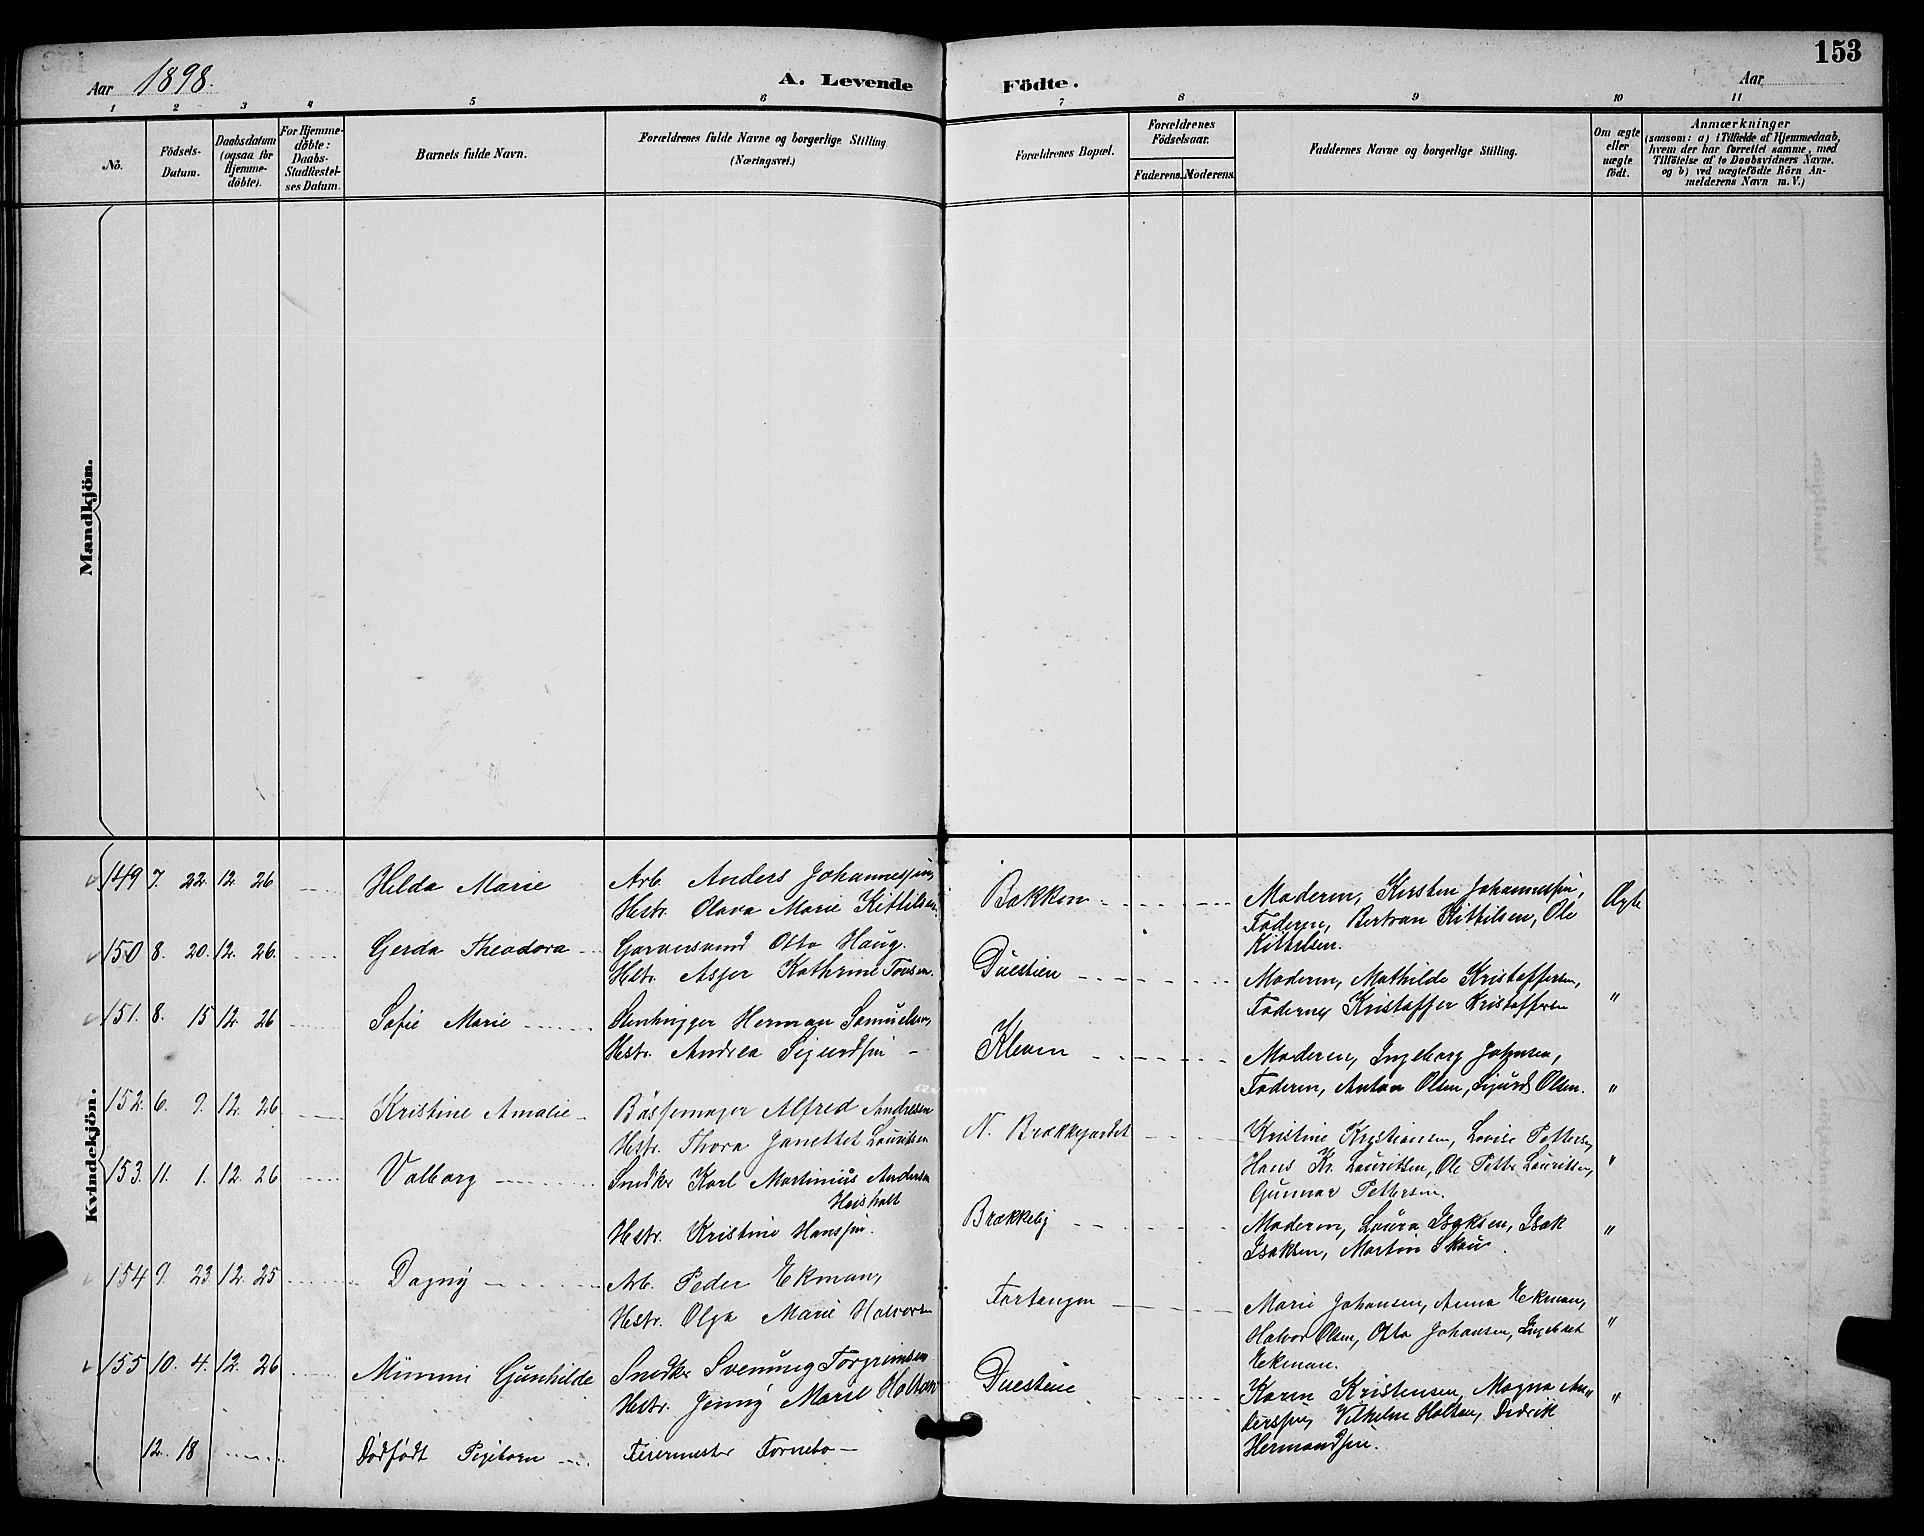 153
Aar 1898.
A. Levende Födte.
Aar
1 2 3 4 5 6 7 8 9 10 11
No.
Födsels-Datum.
Daabsdatum (ogsaa for Hjemmedöbte).
For Hjemmedöbte: Daabs-Stadfæstelses Datum.
Barnets fulde Navn.
Forældrenes fulde Navne og borgerlige Stilling (Næringsvei.)
Forældrenes Bopæl.
Forældrenes Födselsaar.
Faderens. Moderens.
Faddernes Navne og borgerlige Stilling.
Om ægte eller uægte födt.
Anmærkninger
(saasom: a) i Tilfælde af Hjemmedaab,
hvem der har forrettet samme, med
Tilföielse af to Daabsvidners Navne.
og b) ved uægtefödte Börn An-
melderens Navn m. V.)
Mandkjön.
Kvindekjön.
149 7. 22 12 26 Hilda Marie Arb. Anders Johannessen, Bakken Moderen, Kirsten Johannessen, Ægte
Hstr. Olava Marie Kittilsen. Faderen, Bertran Kittilsen, Ole
Kittilsen.
150 8. 20. 12. 26. Gerda Theodora Garversvend Otto Haug. Duestien Moderen, Mathilde Kristoffersen, "
Hstr. Kathrine Faderen, Kristoffer Kristoffersen
151. 8. 15 12. 26 Sofie Marie Stenhugger Herman Samuelsen, Kleven Moderen, Ingeborg Johnsen, "
Hstr. Andrea Sigurdsen Faderen, Anton Olsen, Sigurd Olsen.
152. 6. 9. 12. 26 Kristine Amalie Bössemager Alfred Andresen N. Brækkegardet Kristine Kristiansen, Lovise Pettersen, "
Hstr. Thora Janettet Lauritsen Hans Kr. Lauritsen, Ole Petter Lauritsen,
Gunnar Pettersen.
153. 11. 1. 12. 26 Valborg Snedker Karl Martinius Andersen Brækkeby Moderen, Laura Isaksen, Isak "
Heisholt Isaksen, Martin Skau.
Hstr. Kristine Hanssen.
154 9. 23. 12. 25 Dagny Arb. Peder Ekman, Fartangen Marie Johansen, Anna Ekman, "
Hstr. Olga Marie Halvorsen Halvor Olsen, Otto Johansen, Ingebret
Ekman.
155 10. 4. 12. 26 Mimmi Gunhilde Snedker Svenung Torgrimsen Duestien Karen Kristensen, Magna An- "
Hstr. Jenny Marie Holtan derssen, Vilhelm Holtan, Dedrik
Hermandsen.
12. 18 Dødfødt Pigebarn Feiermester Fornebo